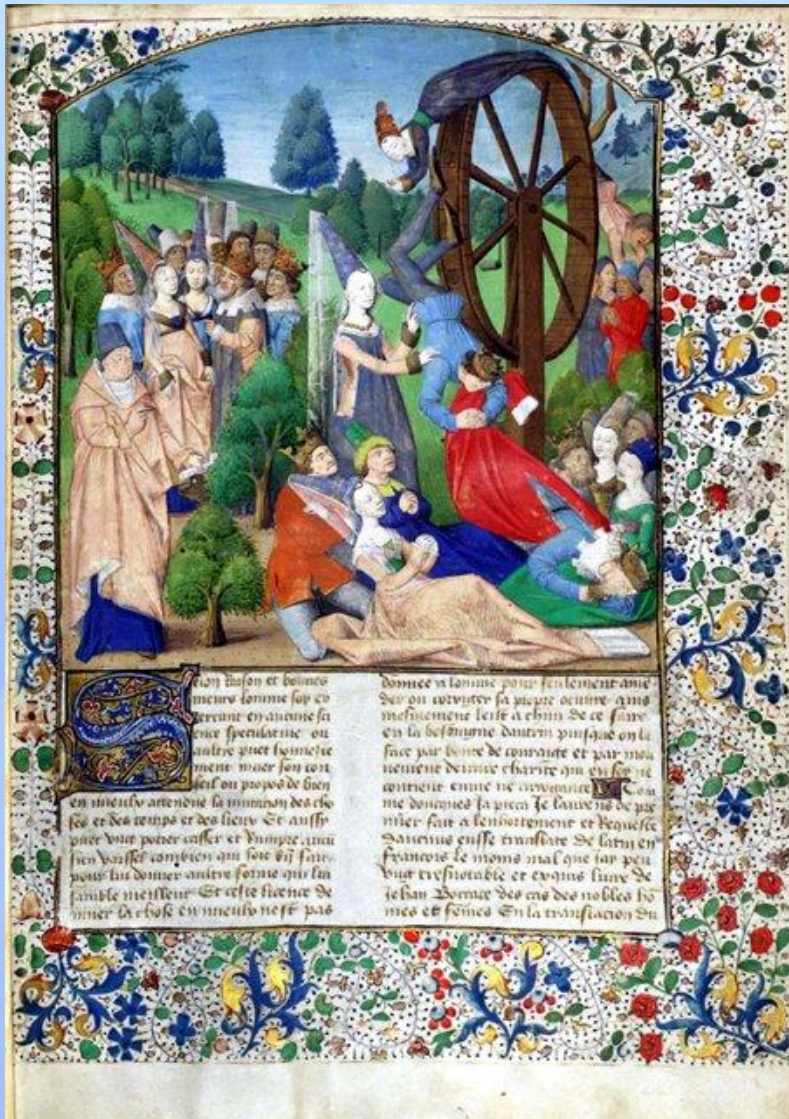 Selon raison et bonnes
meurs lomme soy ex
cercant en aucune sci
ence speculative ou
aultre puet honneste
ment muer son con
seil ou propos de bien
en mieulx attendue la mutacion des cho
ses et des temps et des lieux Et aussy
puet vng potier casser et Rompre aucu
sien vaissel combien qui soit bn fait
pour lui donner aultre forme qui lui
samble meilleur Et ceste licence de
muer la chose en mieulx nest pas
donnee a lomme pour seulement ame
der ou corriger sa propre oeuure ains
mesmement leist a chun de ce faire
en la besoingne dautrui puisque on la
face par bonte de couraige et par mou
uement de pure charite qui en soy ne
contient enuie ne arrogance Com
me doncques ja pieca Je laurens de pre
mier fait a lenhortement et Requeste
daucuns eusse translate de latin en
francois le moins mal que jay peu
vng tresnotable et exquis liure de
Jehan Boccace des cas des nobles ho
mes et femes En la translacion du